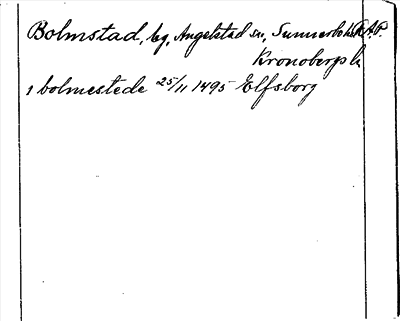 Bolmstad, by, Angelstad sn, Sunnerbo hd RAP.
Kronobergs l.
i bolmestede 25/11 1495 Elfsborg